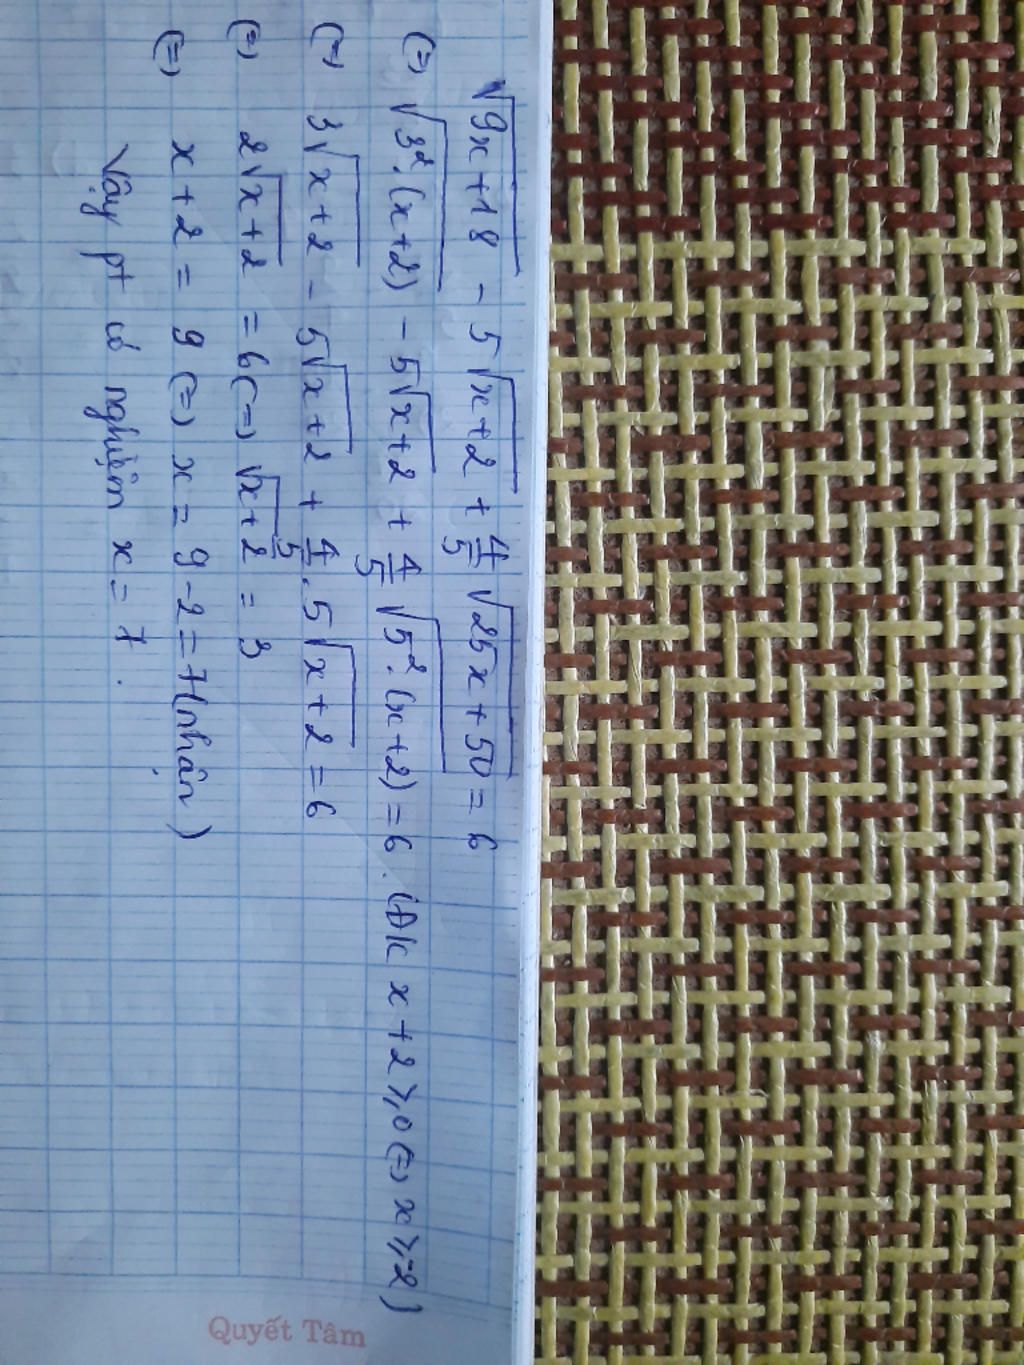 √(9x+18) - 5√(x+2) + 4/5 √(25x+50) = 6
(=) √(3².(x+2)) - 5√(x+2) + 4/5 √(5².(x+2)) = 6. (ĐK x+2 ≥ 0 (=) x ≥ -2)
(=) 3√(x+2) - 5√(x+2) + 4/5 . 5√(x+2) = 6
(=) 2√(x+2) = 6 (=) √(x+2) = 3
(=) x+2 = 9 (=) x = 9-2 = 7 (nhận)
Vậy pt có nghiệm x = 7.
Quyết Tâm